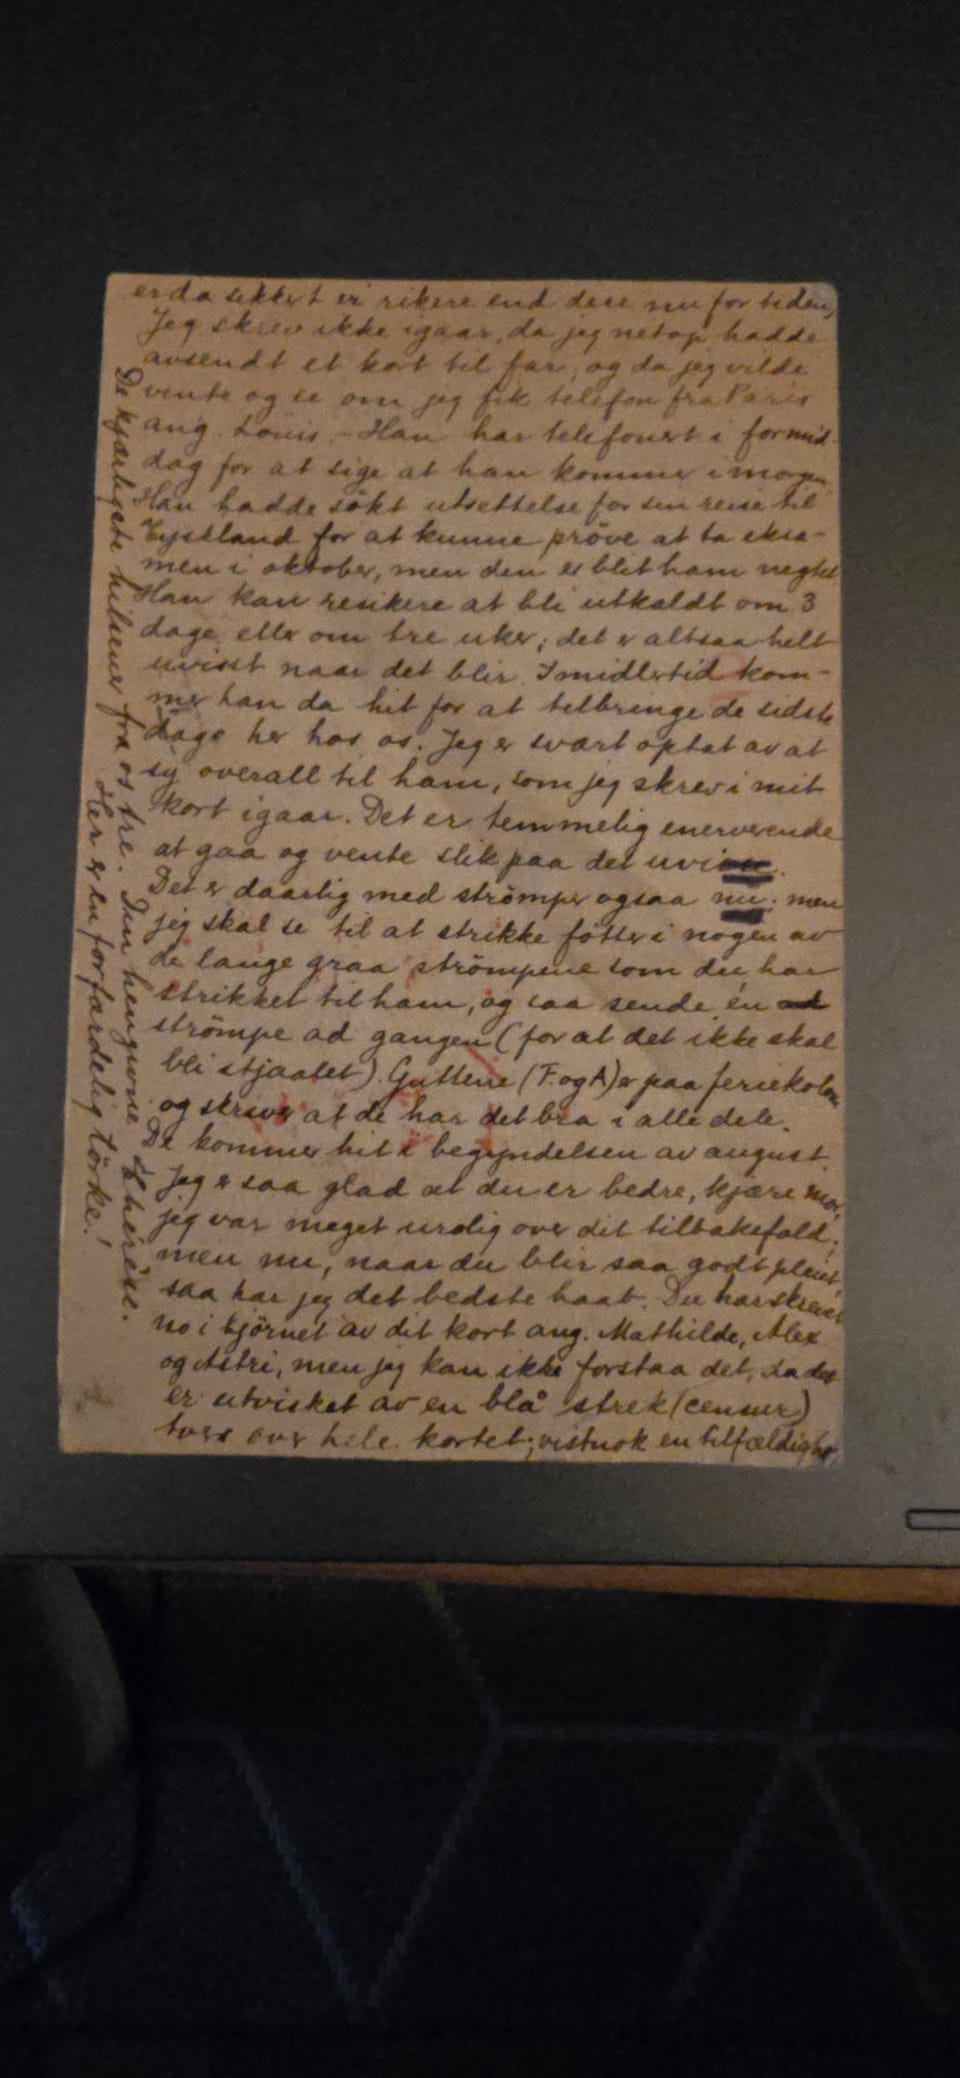 er da sikkert ei rikere end dere nu for tiden,
Jeg skrev ikke igaar, da jeg netop hadde
avsendt et kort til far, og da jeg vilde
vente og se om jeg fik telefon fra Paris
ang. Louis. – Han har telefonert i formid-
dag for at sige at han kommer i morgen
Han hadde søkt utsettelse for sin reise til
Tyskland for at kunne prøve at ta eksa-
men i oktober, men den er blit ham negtet
Han kan resikere at bli utkaldt om 3
dage eller om tre uker; det er altsaa helt
uvisst naar det blir. Imidlertid kom-
mer han da hit for at tilbringe de sidste
dage her hos os. Jeg er svært optat av at
sy overall til ham, som jeg skrev i mit
kort igaar. Det er temmelig enerverende
at gaa og vente slik paa det
Det er daarlig med strömper ogsaa nu; men
jeg skal se til at strikke fötter i nogen av
de lange graa strömpene som du har
strikket til ham, og saa sende én
strömpe ad gangen (for at det ikke skal
bli stjaalet). Guttene (F. og A) er paa feriekoloni
og skriver at de har det bra i alle dele.
De kommer hit i begyndelsen av august.
Jeg er saa glad at du er bedre, kjære mor,
jeg var meget urolig over dit tilbakefald;
men nu, naar du blir saa godt pleiet
saa har jeg det bedste haab. Du har skrevet
no i hjörnet av dit kort ang. Mathilde, Alex
og Astri, men jeg kan ikke forstaa det, da det
er utvisket av en blå strek (censur)
tvers over hele kortet; vistnok en tilfældighet
De kjærligste hilsener fra os tre. Din hengivne Thérèse.
Her er en forfærdelig törke!